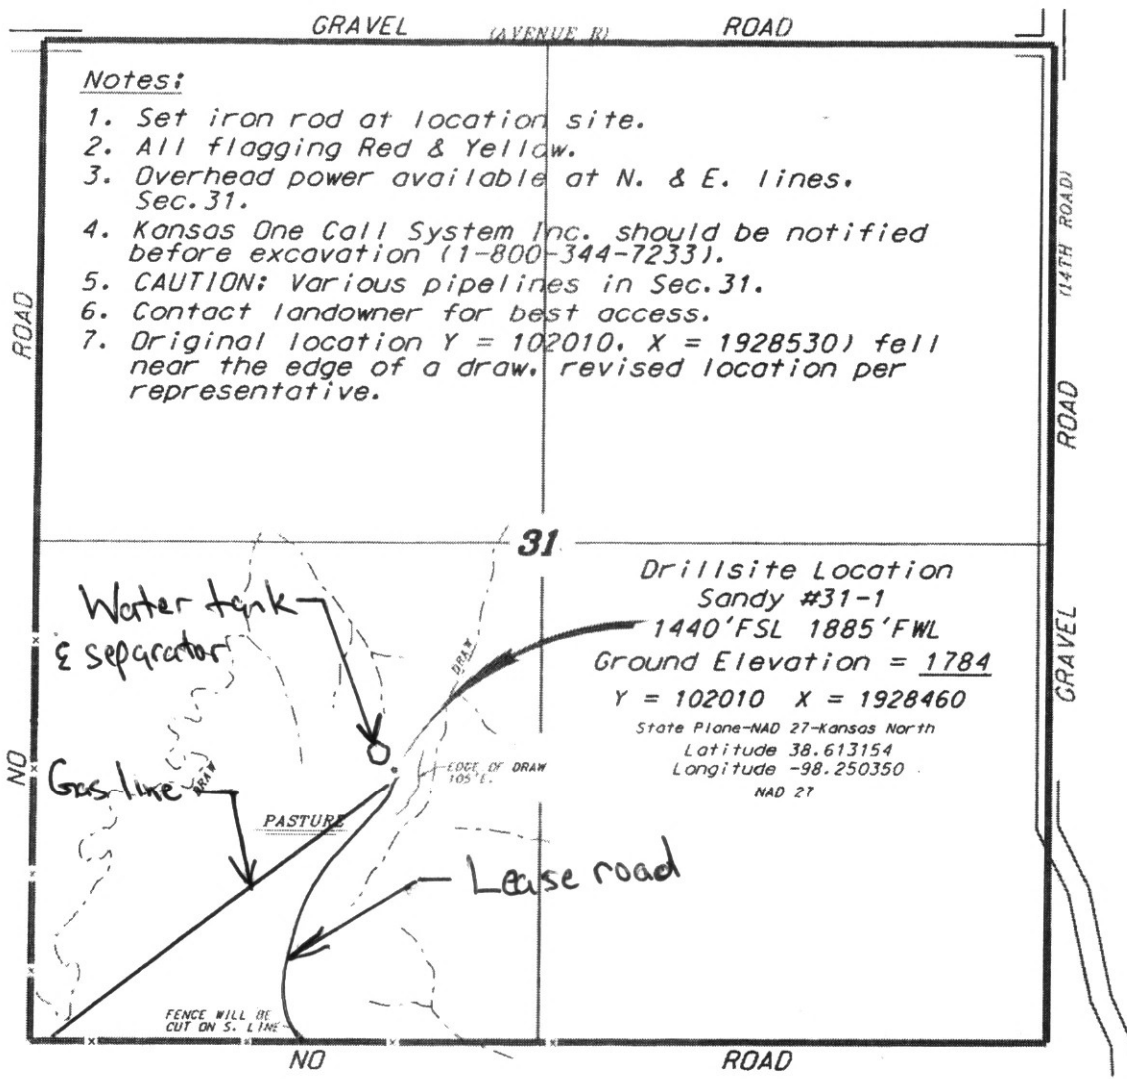 GRAVEL (AVENUE R) ROAD
Notes:
1. Set iron rod at location site.
2. All flagging Red & Yellow.
3. Overhead power available at N. & E. lines.
Sec.31.
4. Kansas One Call System Inc. should be notified
before excavation (1-800-344-7233).
5. CAUTION: Various pipelines in Sec.31.
6. Contact landowner for best access.
7. Original location Y = 102010, X = 1928530) fell
near the edge of a draw, revised location per
representative.
ROAD
(14TH ROAD)
ROAD
31
Drillsite Location
Sandy #31-1
1440'FSL 1885'FWL
Ground Elevation = 1784
Y = 102010 X = 1928460
State Plane-NAD 27-Kansas North
Latitude 38.613154
Longitude -98.250350
NAD 27
Water tank
& separator
DRAW
GRAVEL
NO
Gas line
DRAW
EDGE OF DRAW
105'E.
PASTURE
Lease road
FENCE WILL BE
CUT ON S. LINE
NO ROAD